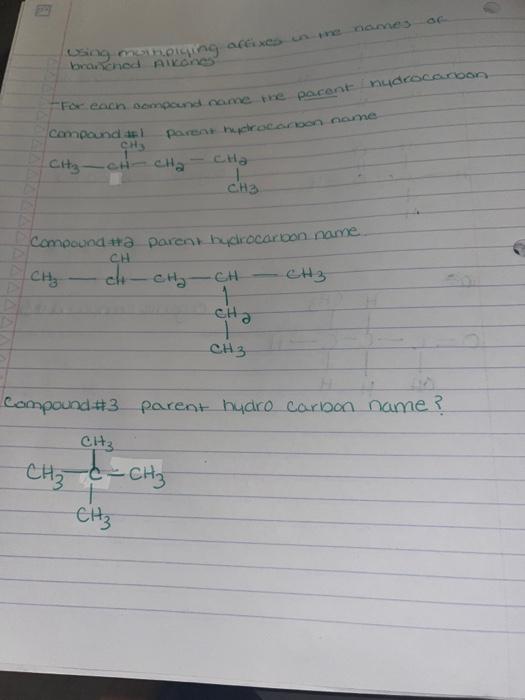 using multiplying affixes in the names of
branched Alkanes
-For each compound name the parent hydrocarbon
Compound #1 parent hydrocarbon name
CH3
CH3 — CH — CH2 — CH2
CH3
Compound #2 parent hydrocarbon name.
CH
CH3 — CH — CH2 — CH — CH3
CH2
CH3
Compound #3 parent hydro carbon name?
CH3
CH3 — C — CH3
CH3